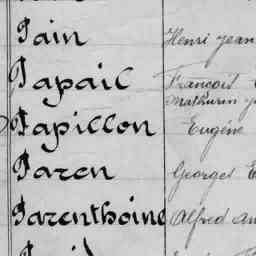 Pain Henri Jean
Papail François
Mathurin
Papillon Eugène
Paren Georges E
Parenthoine Alfred